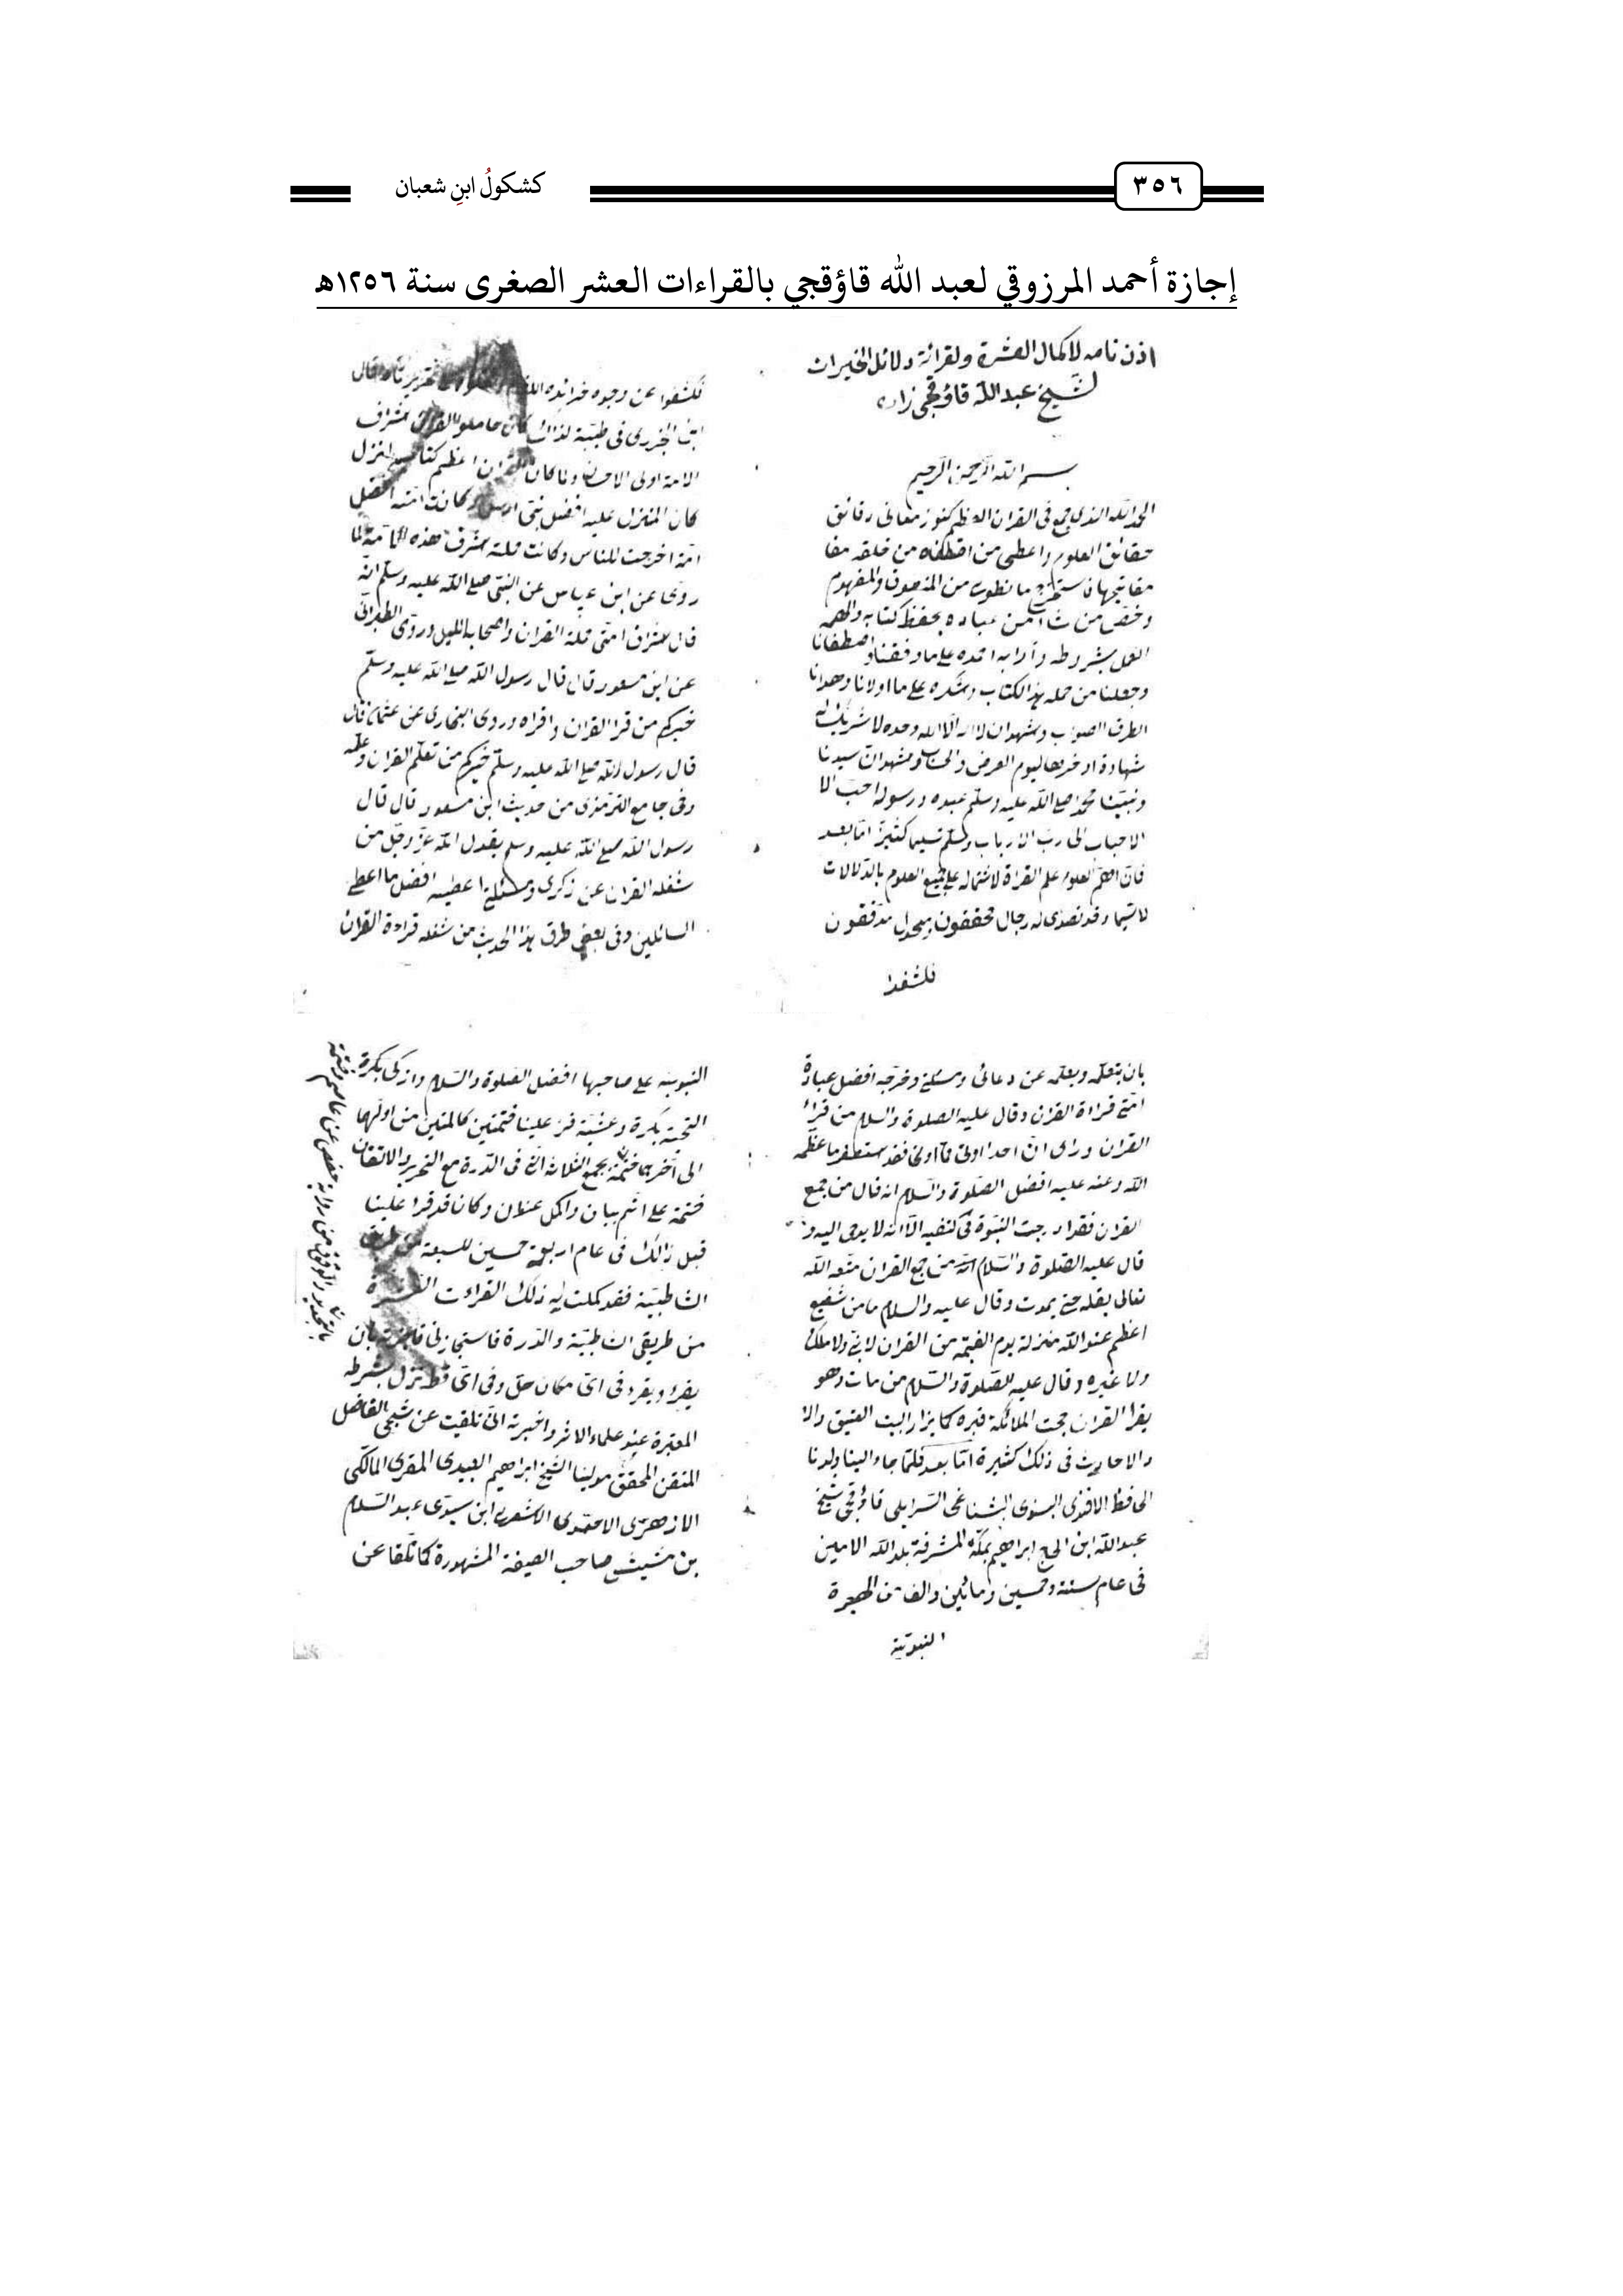 ٣٥٦
كشكولُ ابنِ شعبان
إجازة أحمد المرزوقي لعبد الله قاؤقجي بالقراءات العشر الصغرى سنة ١٢٥٦هـ
اذن نامه لاكمال العشرة ولقرائة دلائل الخيرات
لشيخ عبدالله قاؤقجى زاده
بسم الله الرحمن الرحيم
الحمد لله الذى جمع فى القران العظيم كنوز معانى رقائق
حقائق العلوم واعطى من اصطفاه من خلقه
مفاتيحها من المنطوق والمفهوم
وخصّ من شاء من عباده بحفظ كتابه والهمه
العمل بشروطه وآدابه احمده على ما وفقنا واصطفانا
وجعلنا من حمله هذا الكتاب ونشكره على ما اولانا وهدانا
لطرق الصواب ونشهد ان لا اله الا الله وحده لا شريك له
شهادة ادخرها ليوم العرض والحساب ونشهد ان سيدنا
ونبيّنا محمدا صلى الله عليه وسلّم عبده ورسوله احبّ
الاحباب الى ربّ الارباب وسلّم تسليما كثيرًا امّا بعد
فانّ اعظم العلوم علم القراءة لاشتماله على جميع العلوم بالدّلالات
لا سيّما وقد تصدى له رجال محققون مدققون
فكشفوا
فكشفوا عن وجوه
ابن الجزرى فى طيّبة لذاك كان حاملو القران اشراف
الامة اولى الاحسان ولما كان القران اعظم كتاب انزل
كان المنزل عليه افضل نبىّ ارسل وكانت امّته افضل
امّة اخرجت للناس وكانت حملته اشرف هذه الامّة لما
روى عن ابن عباس عن النبىّ صلى الله عليه وسلّم انه
قال اشراف امّتى حملة القران واصحاب الليل وروى الطبرانى
عن ابن مسعود قال قال رسول الله صلى الله عليه وسلّم
خيركم من قرا القران واقراه وروى البخارى عن عثمان قال
قال رسول الله صلى الله عليه وسلّم خيركم من تعلّم القران وعلّمه
وفى جامع الترمذى من حديث ابن مسعود قال قال
رسول الله صلى الله عليه وسلم يقول الله عزّ وجلّ من
شغله القران عن ذكرى ومسئلتى اعطيته افضل ما اعطى
السائلين وفى بعض طرق هذا الحديث من شغله قراءة القران
بان يتعلّمه ويعلّمه عن دعائى ومسئلتى وخرّجه افضل عبادة
امّتى قراءة القران وقال عليه الصلوة والسلام من قراء
القران وراى انّ احدا اوتى فقد استصغر ما عظّمه
الله وعنه عليه افضل الصّلوة والسّلام انه قال من جمع
القران فقد ادرجت النبّوة فى كتفيه الّا انه لا يوحى اليه
قال عليه الصّلوة والسّلام من جمع القران متّعه الله
تعالى بعقله حتى يموت وقال عليه والسلام ما من شفيع
اعظم عند الله منزلة يوم القيمة من القران لا نبىّ ولا ملك
ولا غيره وقال عليه الصّلوة والسّلام من مات وهو
يقرا القران حجت الملائكة قبره كما يزار البيت العتيق
والاحاديث فى ذلك كثيرة امّا بعد فلمّا جاء الينا ولدنا
الحافظ الافندى البسنوى السّرايلى قاؤقجى شيخ
عبدالله ابن الحاج ابراهيم بمكّة المشرفة بلد الله الامين
فى عام ستة وخمسين ومائتين والف من الهجرة
النبويّة
النبويّة على صاحبها افضل الصّلوة والسّلام وازكى
التحيّة بكرة وعشيّة قرء علينا ختمتين كاملتين من اولهما
الى آخرهما ختمة بجمع الثلاثة فى الدّرة مع التحرير والاتقان
ختمة على اتم بيان واكمل عنوان وكان قد قرا علينا
قبل ذالك فى عام اربعة خمسين للسبعة من طريق
الشاطبيّة فقد كملت له ذلك القراءت العشرة
من طريقى الشاطبيّة والدّرة فاستجازنى فاجزته بان
يقرء ويقرء فى اىّ مكان حلّ وفى اىّ قطر نزل بشرطه
المعتبرة عند علماء الاثر واخبرته انّى تلقيت عن شيخى الفاضل
المتقن المحقّق مولينا الشيخ ابراهيم العبيدى المقرى المالكى
الازهرى الاحمدى ابن سيدى عبد السّلام
بن مشيش صاحب الصيغة المشهورة كما تلقّا عن
وختمة
بالتجويد من رواية حفص عن عاصم